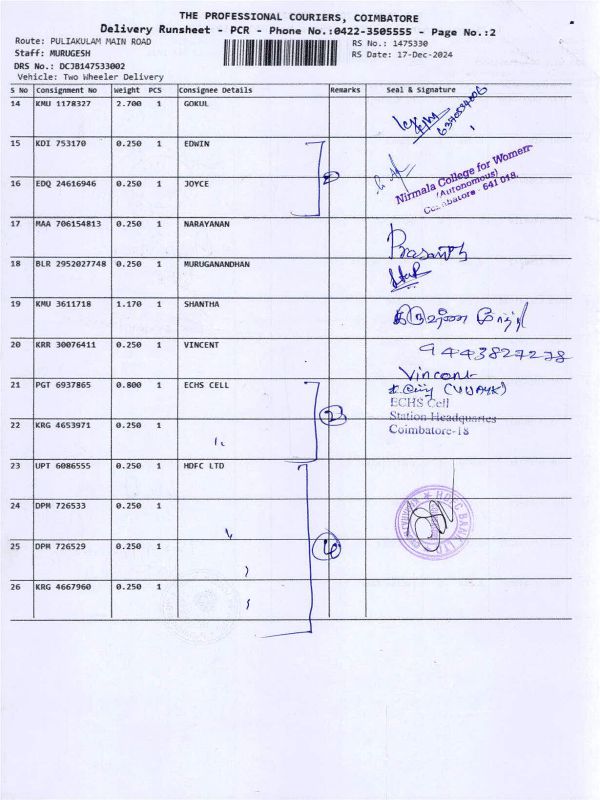 THE PROFESSIONAL COURIERS, COIMBATORE
Delivery Runsheet - PCR - Phone No.:0422-3505555 - Page No.:2
Route: PULIAKULAM MAIN ROAD
RS No.: 1475330
Staff: MURUGESH
RS Date: 17-Dec-2024
DRS No.: DCJB147533002
Vehicle: Two Wheeler Delivery
S No Consignment No Weight PCS Consignee Details Remarks Seal & Signature
14 KMU 1178327 2.700 1 GOKUL
15 KDI 753170 0.250 1 EDWIN
16 EDQ 24616946 0.250 1 JOYCE
Nirmala College for Women
(Autonomous)
Coimbatore - 641 018.
17 MAA 706154813 0.250 1 NARAYANAN
Prasanth
18 BLR 2952027748 0.250 1 MURUGANANDHAN
19 KMU 3611718 1.170 1 SHANTHA
20 KRR 30076411 0.250 1 VINCENT
9443827278
Vincent
21 PGT 6937865 0.800 1 ECHS CELL
(VIJAYK)
ECHS Cell
Station Headquarters
Coimbatore-18
22 KRG 4653971 0.250 1
23 UPT 6086555 0.250 1 HDFC LTD
24 DPM 726533 0.250 1
HDFC BANK LTD
25 DPM 726529 0.250 1
26 KRG 4667960 0.250 1